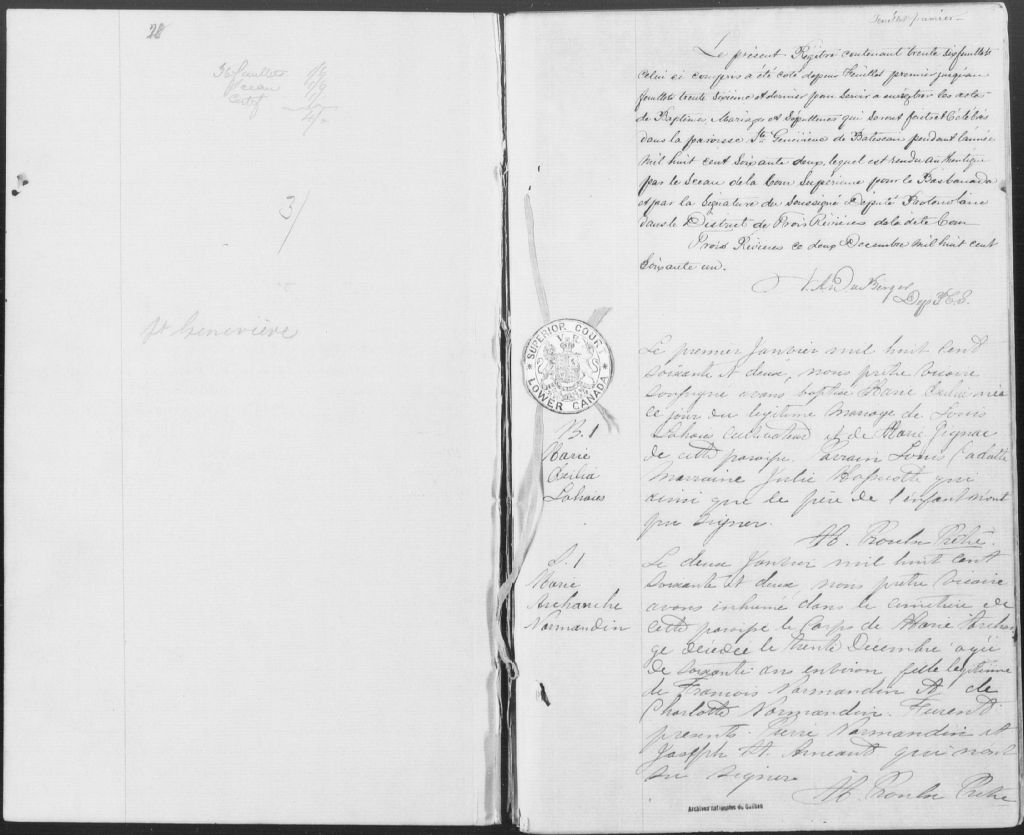 28
36 feuillets 1/9
Sceau 1/9
Certif
4/-
3/
St Geneviève
Feuillet premier
Le présent Régistre contenant trente six feuillets
celui ci compris a été coté depuis Feuillet premier jusqu'au
feuillet trente sixième et dernier pour servir a enregistrer les actes
de Baptêmes, Mariages et Sépultures qui seront faits et Célébrés
dans la paroisse Ste Geneviève de Batiscan pendant l'année
mil huit cent soixante deux, lequel est rendu authentique
par le Sceau de la Cour Supérieure pour le Bas Canada
et par la Signature du Soussigné Député Protonotaire
dans le District de Trois Rivières de la dite Cour
Trois Rivières ce deux Decembre mil huit cent
soixante un.
Dep P.C.S.
SUPERIOR COURT
V R
LOWER CANADA
B. 1
Marie
Exilia
Lahaie
Le premier Janvier mil huit cent
soixante et deux, nous prêtre vicaire
soussigné avons baptisé Marie Exilia née
ce jour du légitime mariage de Louis
Lahaie Cultivateur et de Marie Gignac
de cette paroisse. Parrain Louis Cadotte
Marraine Julie qui
ainsi que le père de l'enfant n'ont
pu signer.
Ptre.
S. 1
Marie
Archanche
Normandin
Le deux Janvier mil huit cent
soixante et deux, nous prêtre Vicaire
avons inhumé dans le cimetière de
cette paroisse le Corps de Marie Archan-
ge décédée le trente Décembre agée
de soixante ans environ fille légitime
de Francois Normandin et de
Charlotte Normandin. Furent
présents Pierre Normandin et
Joseph St. Arneault qui n'ont
su signer
Prêtre
Archives nationales du Québec